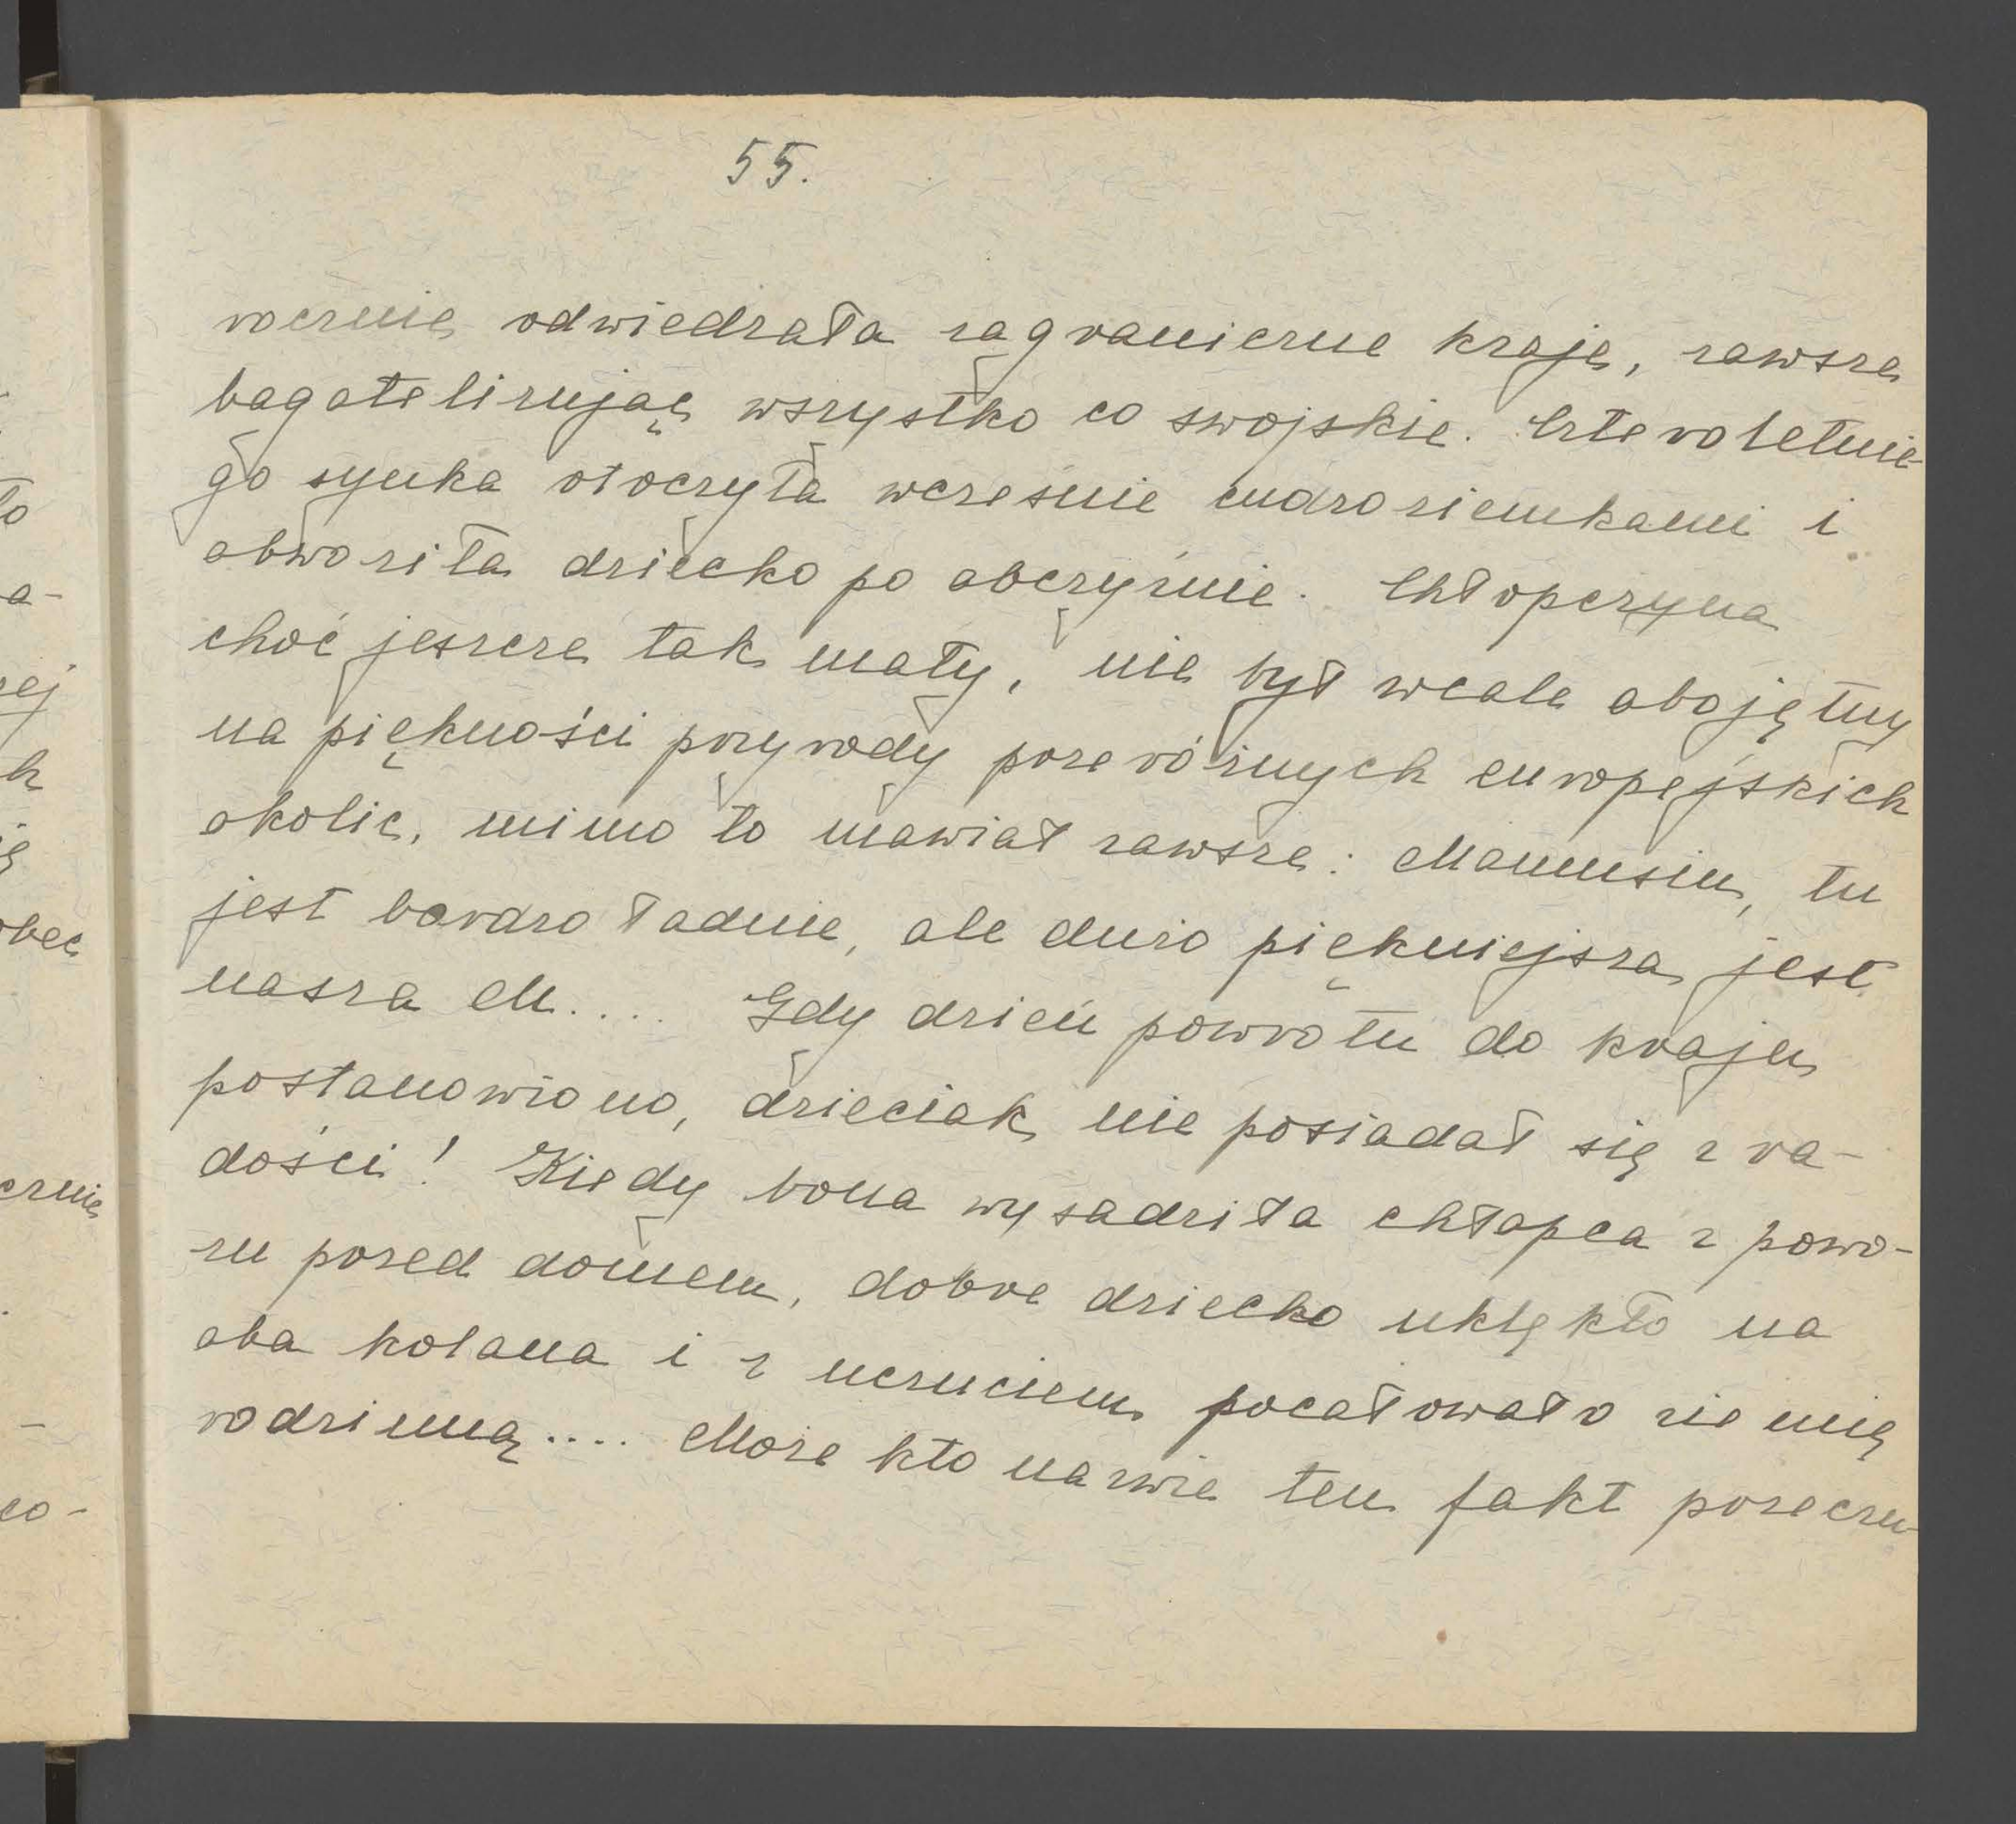 55.
rocznie odwiedzała zagraniczne kraje, zawsze
bagatelizując wszystko co swojskie. Czteroletnie-
go synka otoczyła wcześnie cudzoziemkami i
obwoziła dziecko po obczyźnie. Chłopczyna
choć jeszcze tak mały, nie był wcale obojętny
na piękności przyrody przeróżnych europejskich
okolic, mimo to mawiał zawsze: Mamusiu, tu
jest bardzo ładnie, ale dużo piękniejsza jest
nasza M.... Gdy dzień powrotu do kraju
postanowiono, dzieciak nie posiadał się z ra-
dości! Kiedy bona wysadziła chłopca z powo-
zu przed domem, dobre dziecko uklękło na
oba kolana i z uczuciem pocałowało ziemię
rodzinną.... Może kto nazwie ten fakt przeczu-
to
a-
zej
h
ię
obec
cznie
-
co-